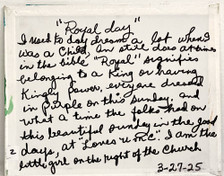 "Royal day"
I used to day dream a lot when I
was a Child, An still does at times
in the bible "Royal" signifies
belonging to a King or having
Kingly power, everyone dressed
in purple on this Sunday, and
what a time the folks had on
this beautiful Sunday in the good
days, at Lover's I am the
little girl on the right of the Church
3-27-25